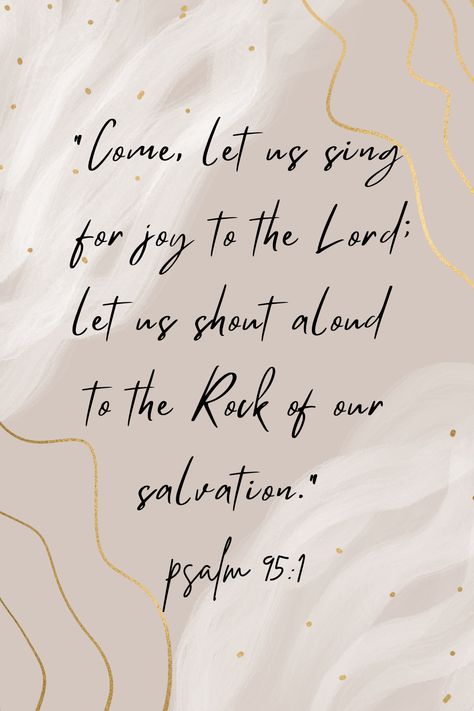 "Come, let us sing
for joy to the Lord;
let us shout aloud
to the Rock of our
salvation."
psalm 95:1